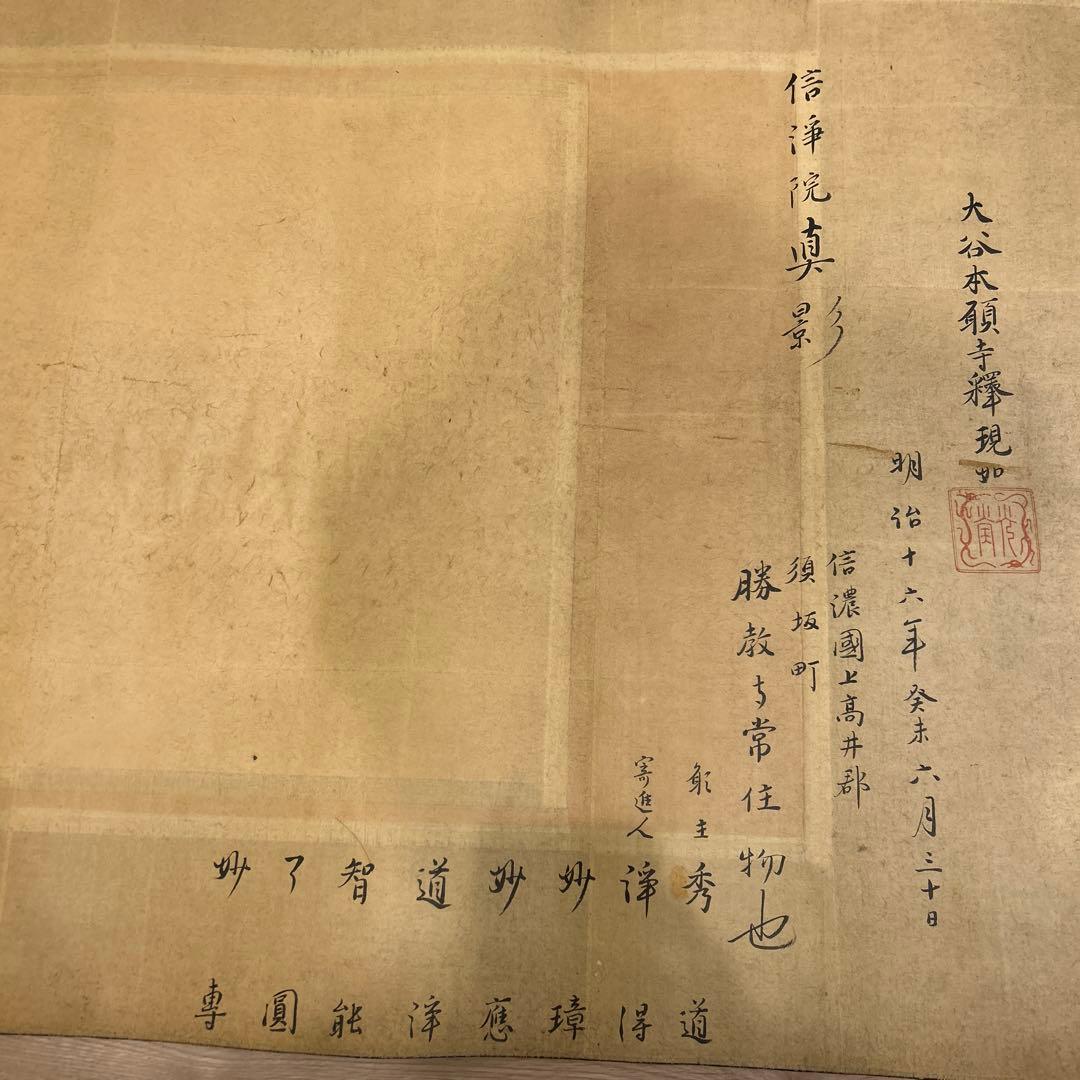 大谷本願寺釋現如
明治十六年癸未六月三十日
信淨院真影
信濃國上高井郡
須坂町
勝教寺常住物也
願主
秀道
寄進人
淨得
妙璋
妙應
道淨
智能
了圓
妙專